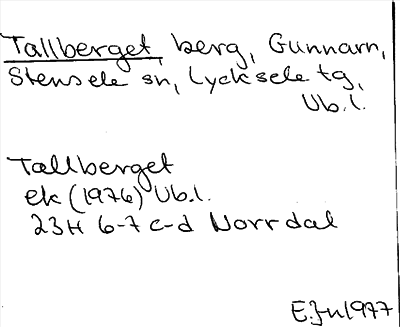 Tallberget, berg, Gunnarn,
Stensele sn, Lycksele tg,
Vb.l.
Tallberget
ek (1976) Vb.l.
23H 6-7 c-d Norrdal
E.Jn 1977